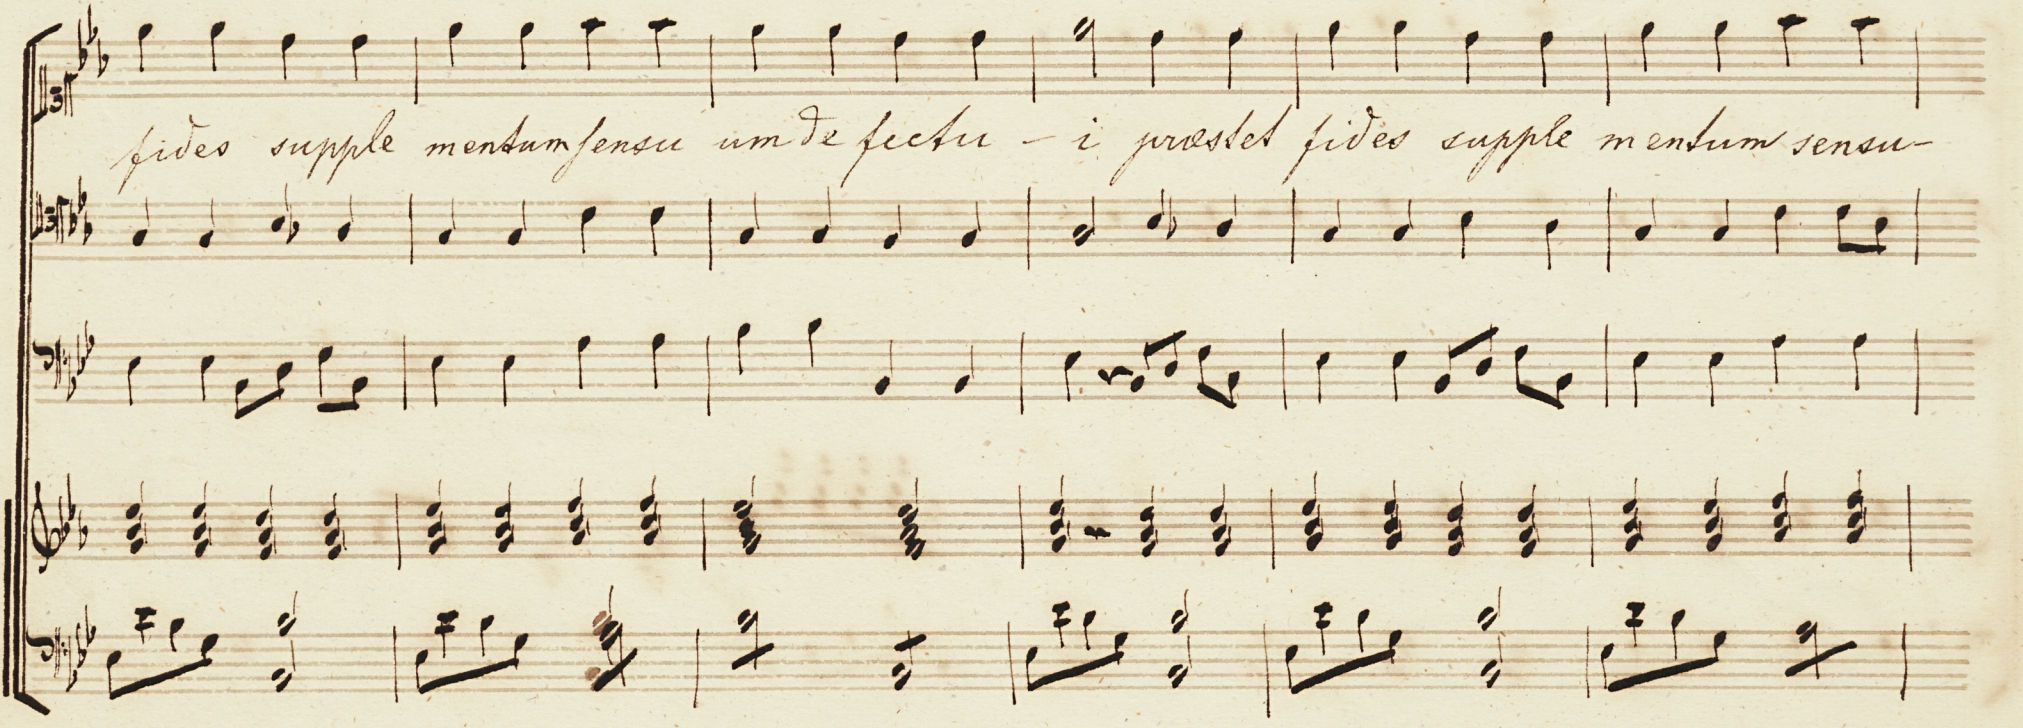 fides supple mentum sensu um de fectu - i præstet fides supple mentum sensu-